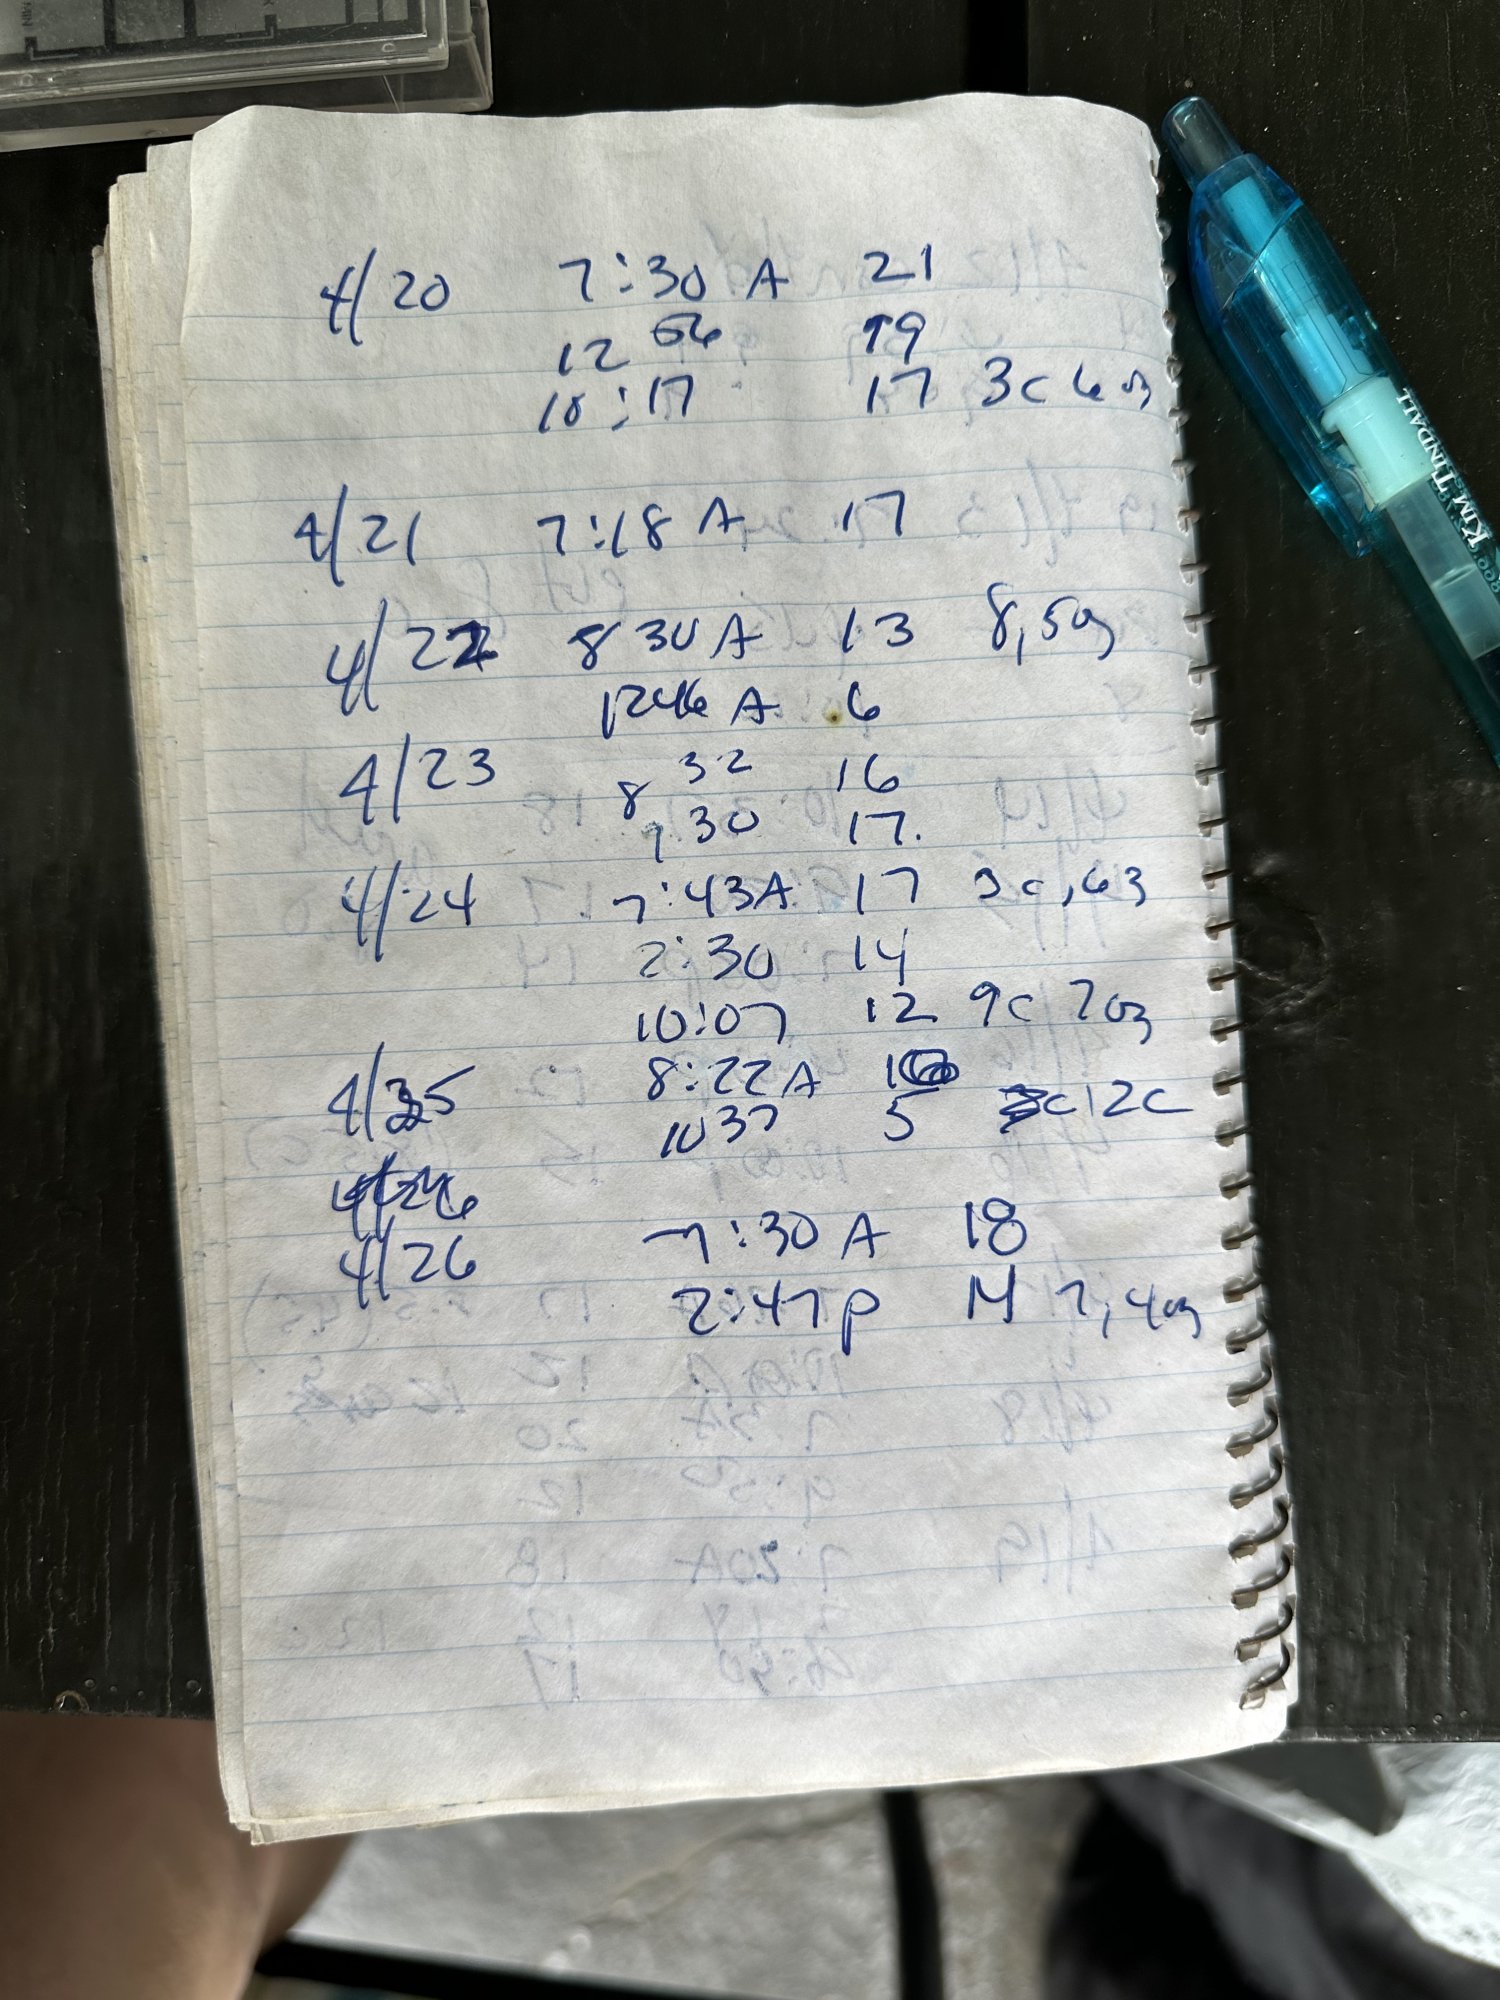 4/20 7:30 A 21
12 56 19
10:17 17 3c 6oz
4/21 7:18 A 17
4/22 8 30 A 13 8,5oz
1246 A 6
4/23 8 32 16
7 30 17.
4/24 7:43A 17 3c,63
2:30 14
10:07 12 9c 7oz
4/25 8:22 A
10 37 5 12c
4/26
7:30 A 18
2:47p 14 7,4oz
KIM TINDALL